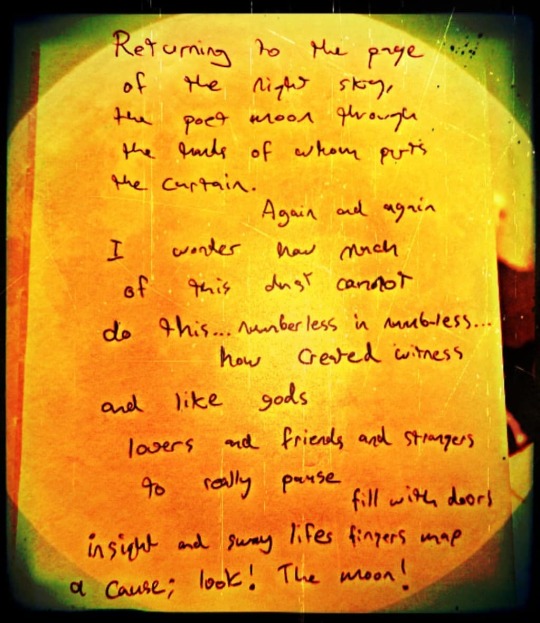 Returning to the page
of the night sky,
the poet moon through
the of whom puts
the curtain.
Again and again
I wonder how much
of this dust cannot
do this... numberless in numberless...
how created witness
and like gods
lovers and friends and strangers
to really pause
fill with doors
insight and sway lifes fingers map
a cause; look! The moon!